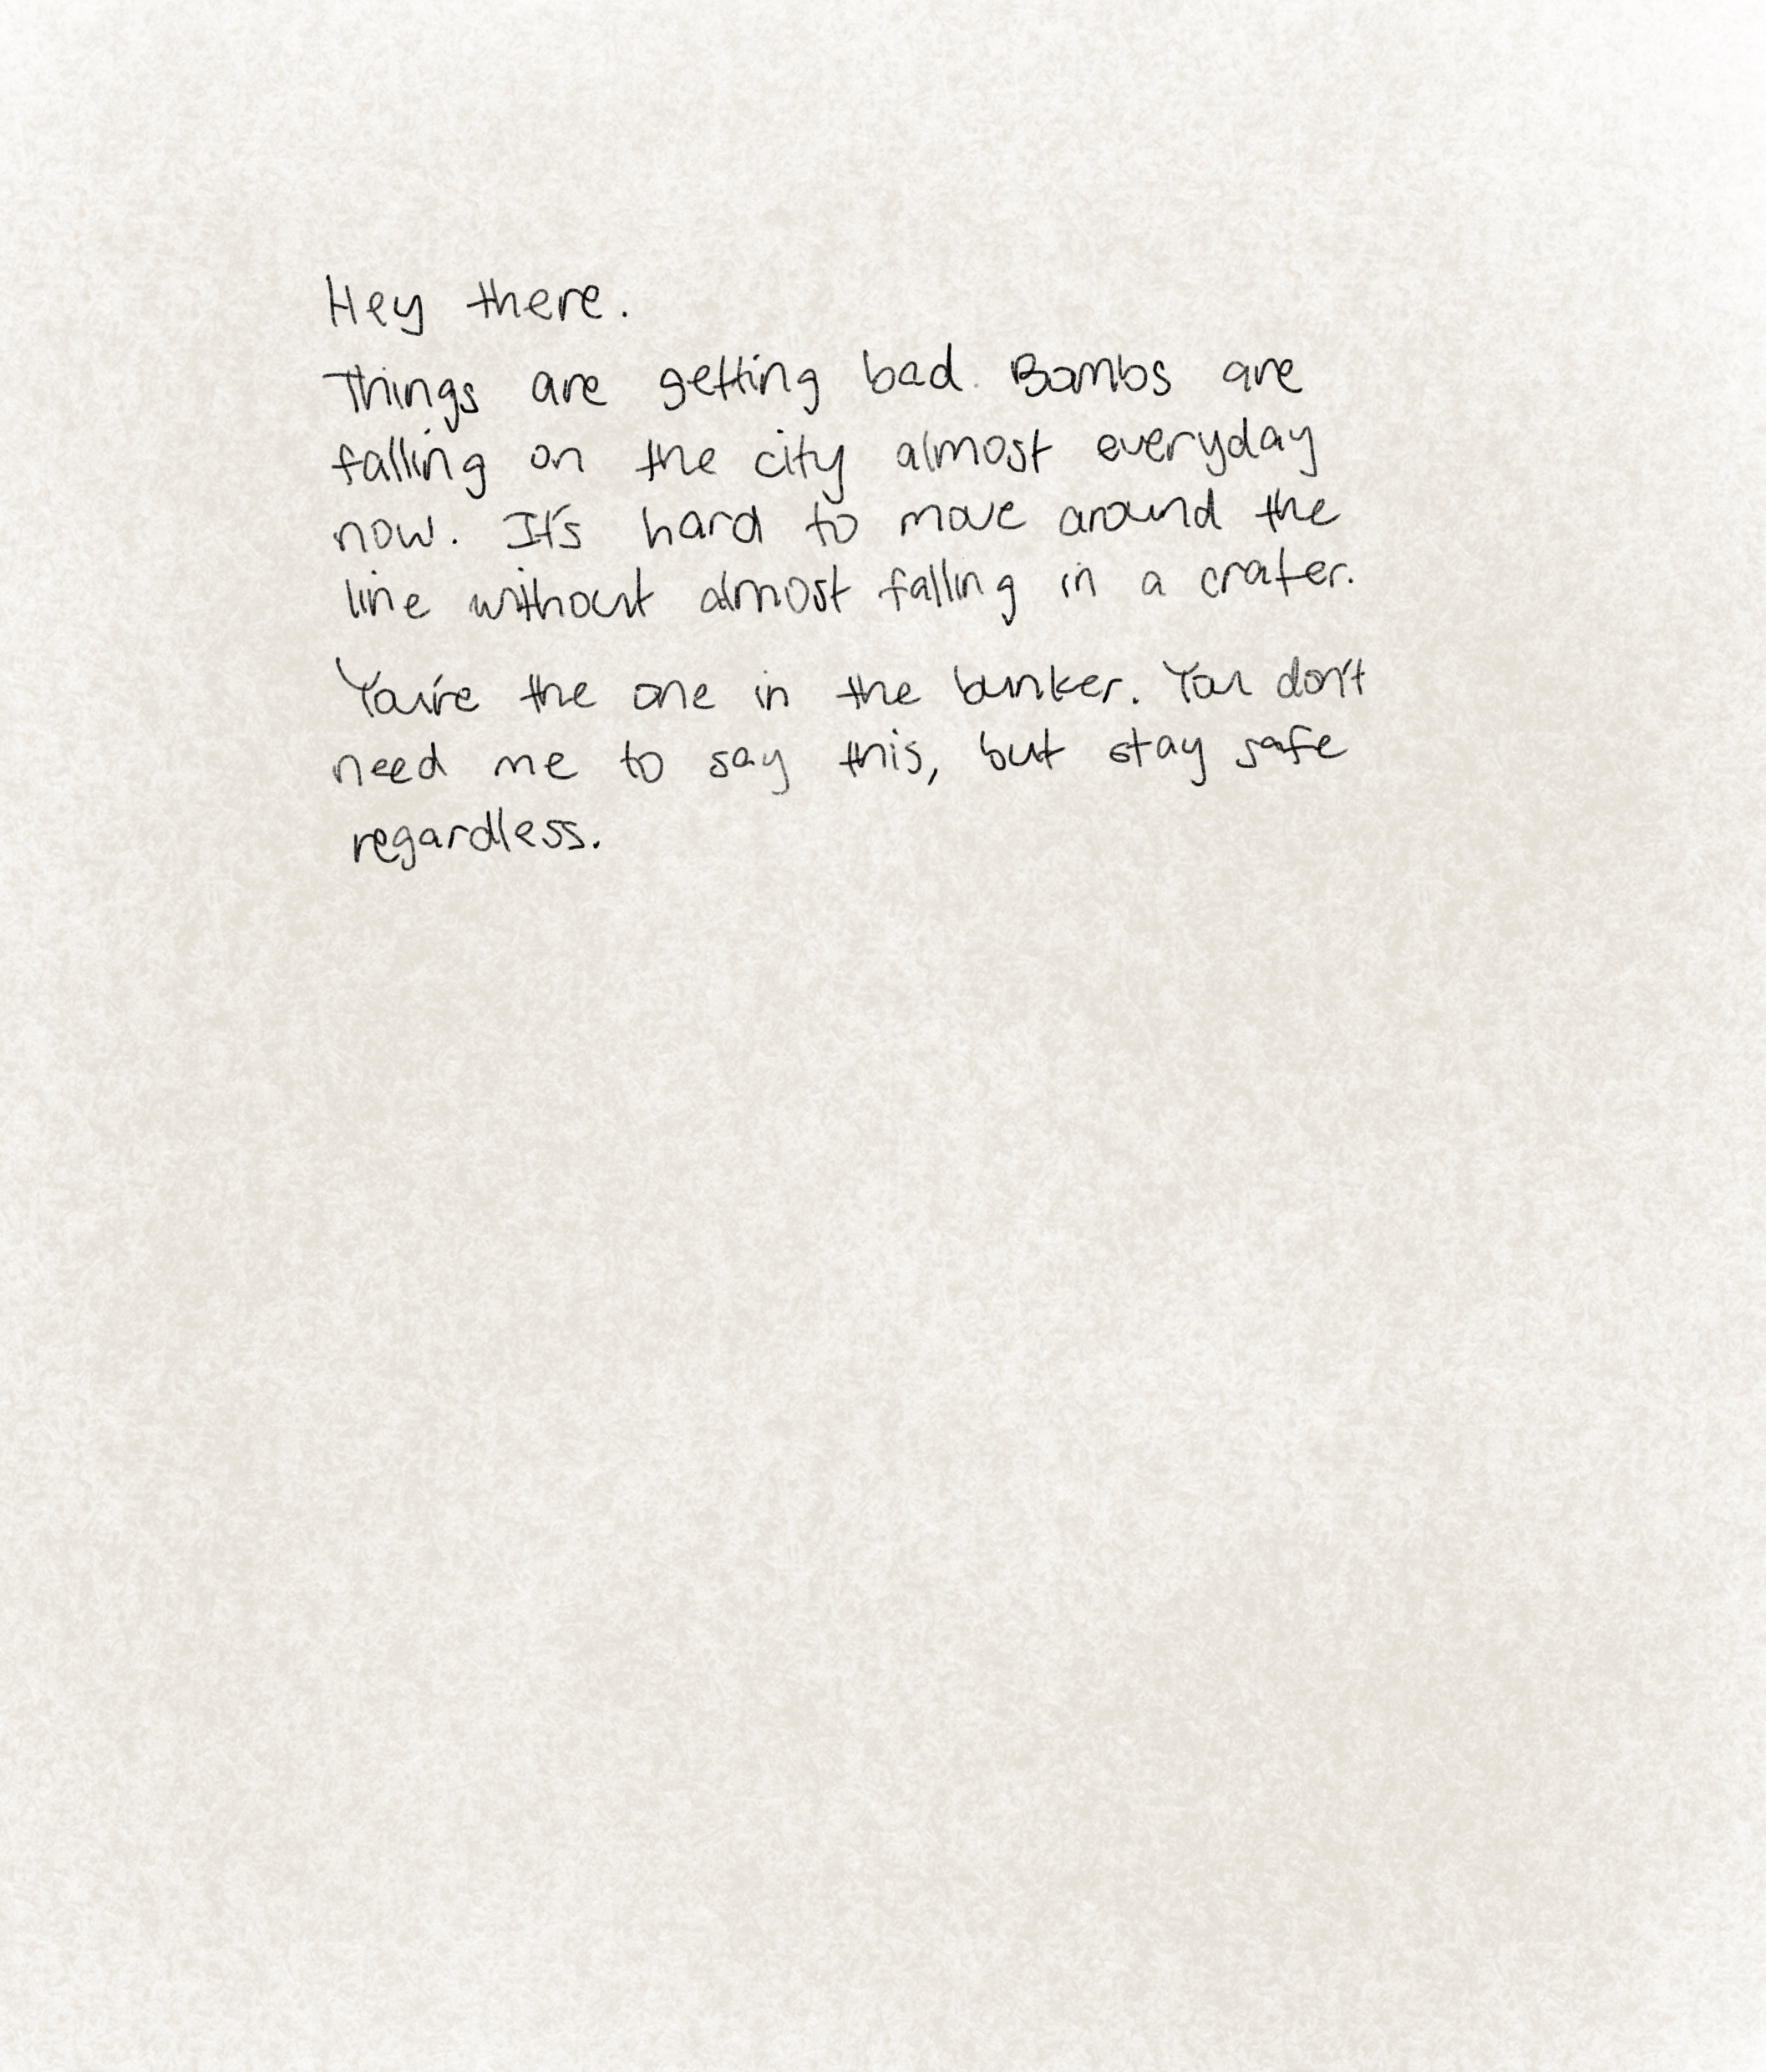 Hey there.
Things are getting bad. Bombs are
falling on the city almost everyday
now. It's hard to move around the
line without almost falling in a crater.
You're the one in the bunker. You don't
need me to say this, but stay safe
regardless.